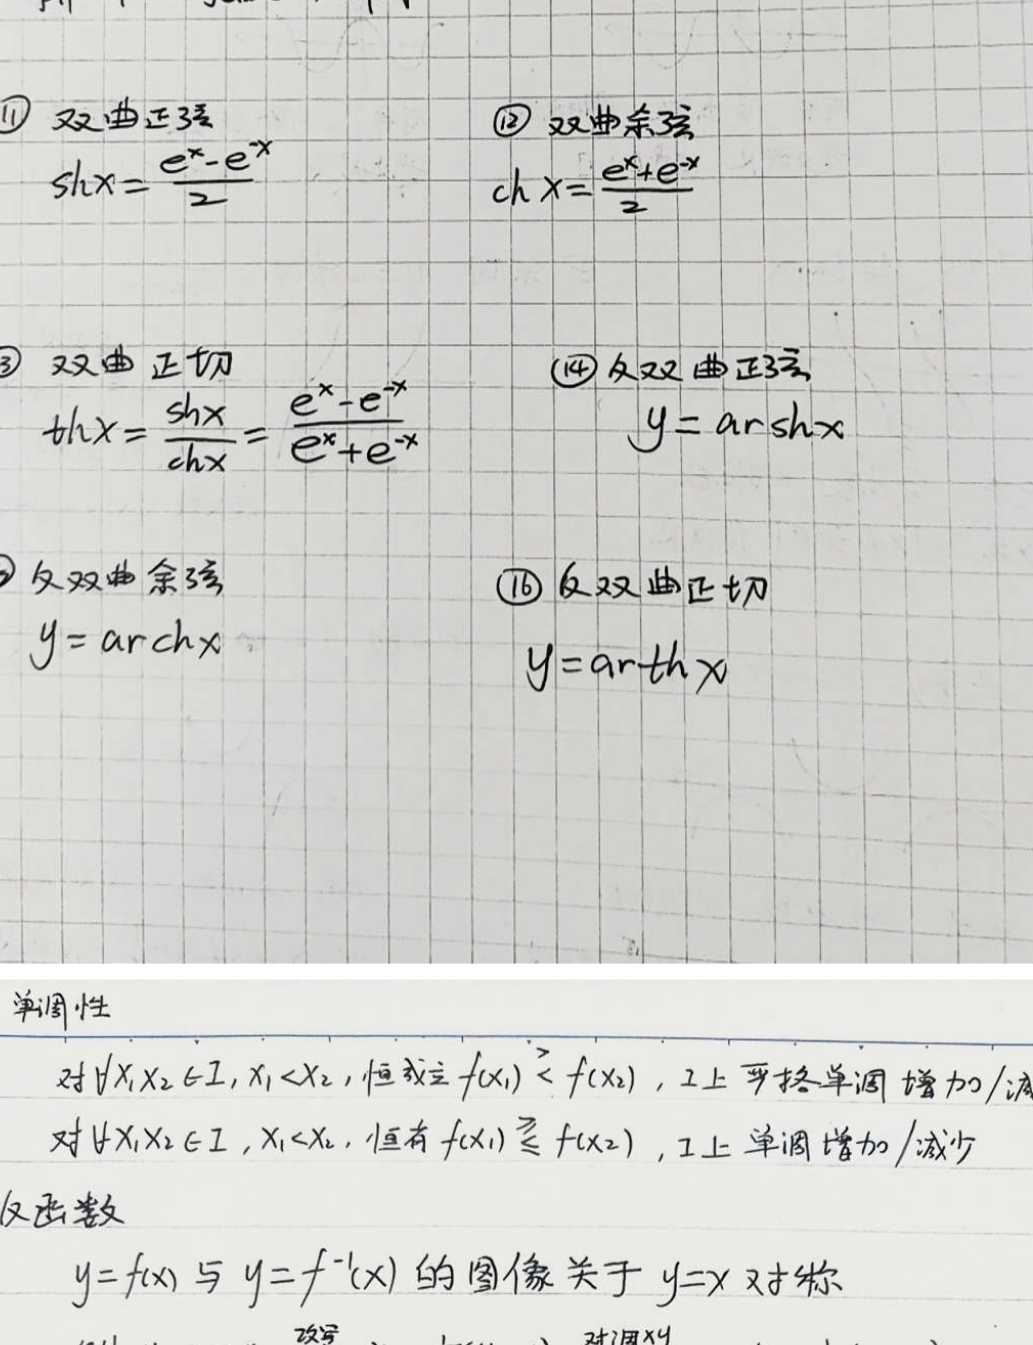 ⑪ 双曲正弦
shx = (e^x - e^-x)/2
⑫ 双曲余弦
ch x = (e^x + e^-x)/2
③ 双曲正切
thx = shx/chx = (e^x - e^-x)/(e^x + e^-x)
⑭ 反双曲正弦
y = arshx
反双曲余弦
y = archx
⑯ 反双曲正切
y = arthx
单调性
对∀x₁x₂∈I, x₁<x₂, 恒成立 f(x₁) >< f(x₂), I上 严格单调增加/减
对∀x₁x₂∈I, x₁<x₂, 恒有 f(x₁) ≥≤ f(x₂), I上 单调增加/减少
反函数
y=f(x) 与 y=f⁻¹(x) 的图像关于 y=x 对称
改写 对调xy